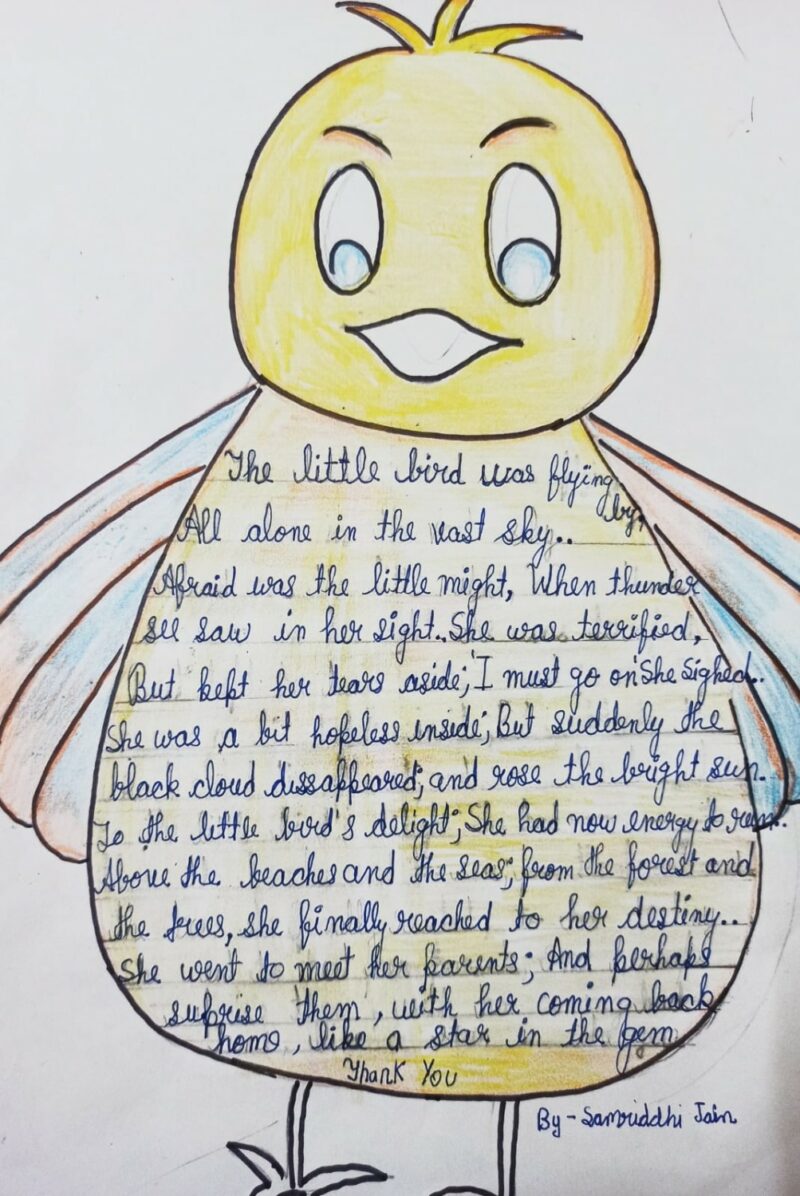 The little bird was flying by,
All alone in the vast sky..
Afraid was the little might, When thunder
see saw in her sight..She was terrified,
But kept her tears aside; 'I must go on' She sighed..
She was a bit hopeless inside; But suddenly the
black cloud dissappeared; and rose the bright sun.
To the little bird's delight; She had now energy to run..
Above the beaches and the seas; from the forest and
the trees, she finally reached to her destiny..
She went to meet her parents; And perhaps
suprise them, with her coming back
home, like a star in the gem
Thank You
By - Samriddhi Jain